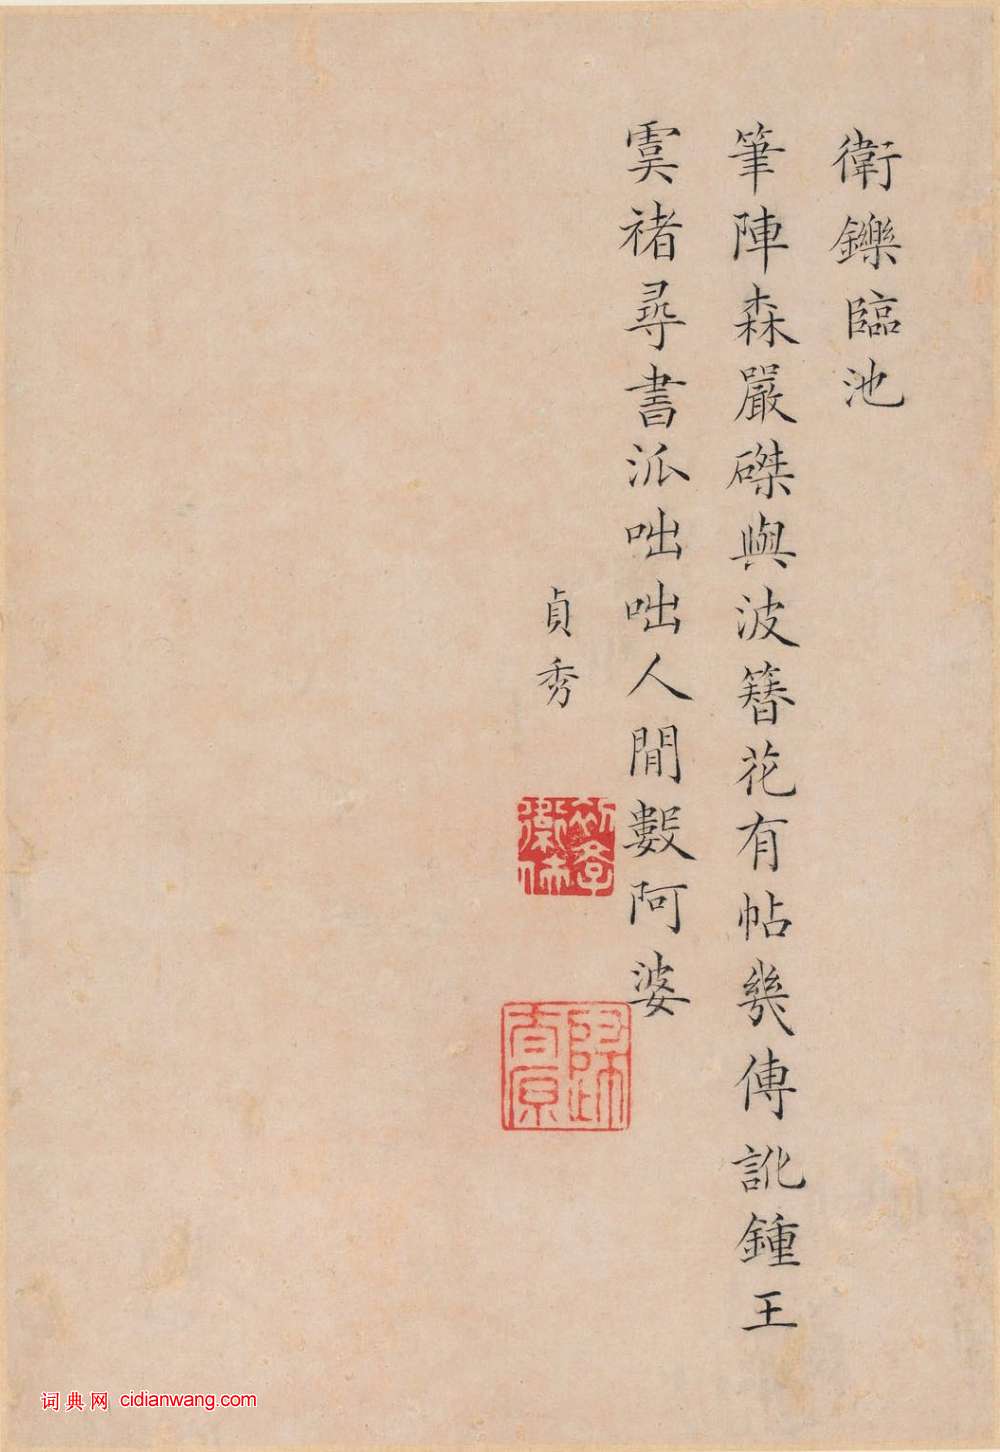 衛鑠臨池
筆陣森嚴磔與波簪花有帖幾傳訛鍾王
虞褚尋書派咄咄人間數阿婆
貞秀
词典网 cidianwang.com